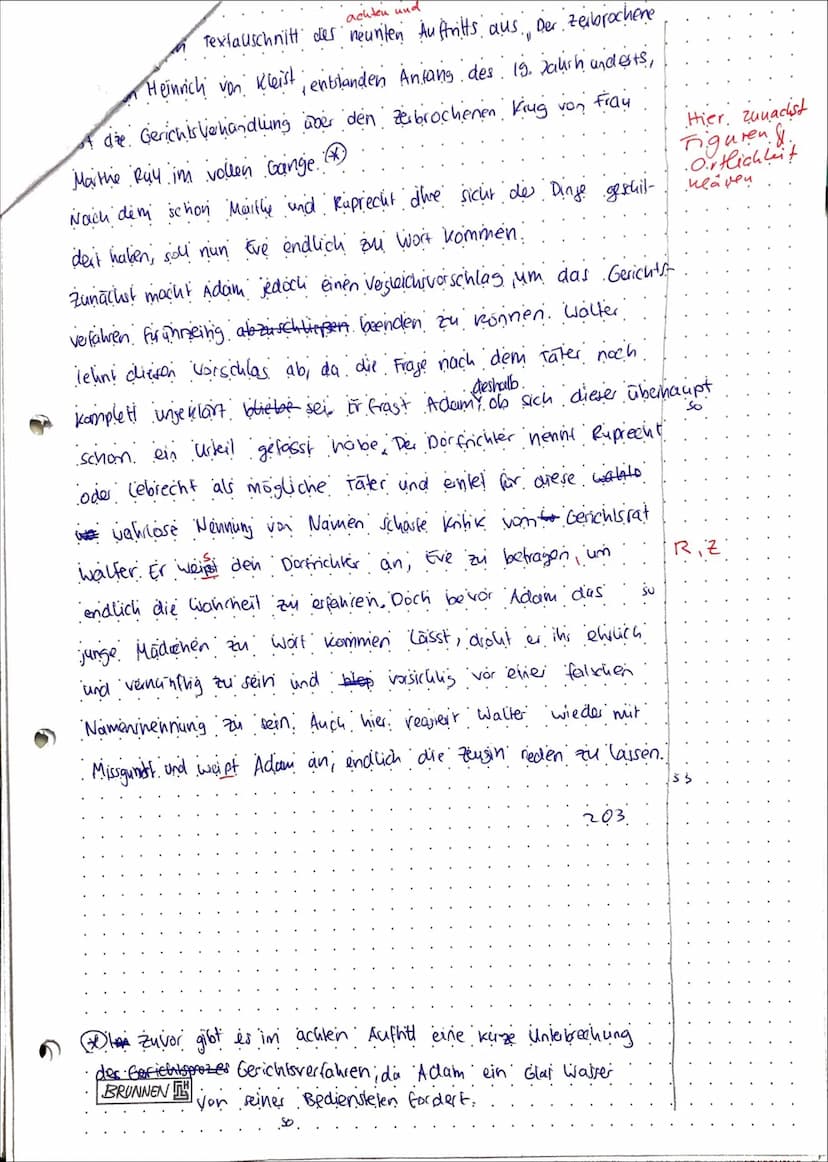 achten und
Textausschnitt des neunten Auftritts aus „Der zerbrochene
Heinrich von Kleist, entstanden Anfang des 19. Jahrhunderts,
die Gerichtsverhandlung über den zerbrochenen Krug von Frau
Marthe Rull im vollen Gange. *
Hier zunächst
Figuren &
Örtlichkeit
klären
Nach dem schon Marthe und Ruprecht ihre Sicht der Dinge geschil-
dert haben, soll nun Eve endlich zu Wort kommen.
Zunächst macht Adam jedoch einen Vergleichsvorschlag, um das Gerichts-
verfahren frühzeitig abzuschließen beenden zu können. Walter
lehnt diesen Vorschlag ab, da die Frage nach dem Täter noch
komplett ungeklärt bliebe sei. Er fragt Adam deshalb, ob sich dieser überhaupt
so
schon ein Urteil gefasst habe. Der Dorfrichter nennt Ruprecht
oder Lebrecht als mögliche Täter und erntet für diese
wahllose Nennung von Namen scharfe Kritik vom Gerichtsrat
Walter. Er weist den Dorfrichter an, Eve zu befragen, um
R, Z
endlich die Wahrheit zu erfahren. Doch bevor Adam das
junge Mädchen zu Wort kommen lässt, droht er ihr ehrlich
und vernünftig zu sein und vorsichtig vor einer falschen
Namensnennung zu sein. Auch hier reagiert Walter wieder mit
Missgunst und weißt Adam an, endlich die Zeugin reden zu lassen.
203
* Zuvor gibt es im achten Auftritt eine kurze Unterbrechung
des Gerichtsprozes Gerichtsverfahren, da Adam ein Glas Wasser
BRUNNEN
von seiner Bediensteten fordert.
so